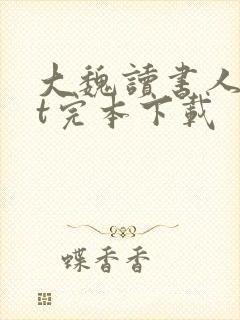 大魏讀書人
t完本下載
蝶香香